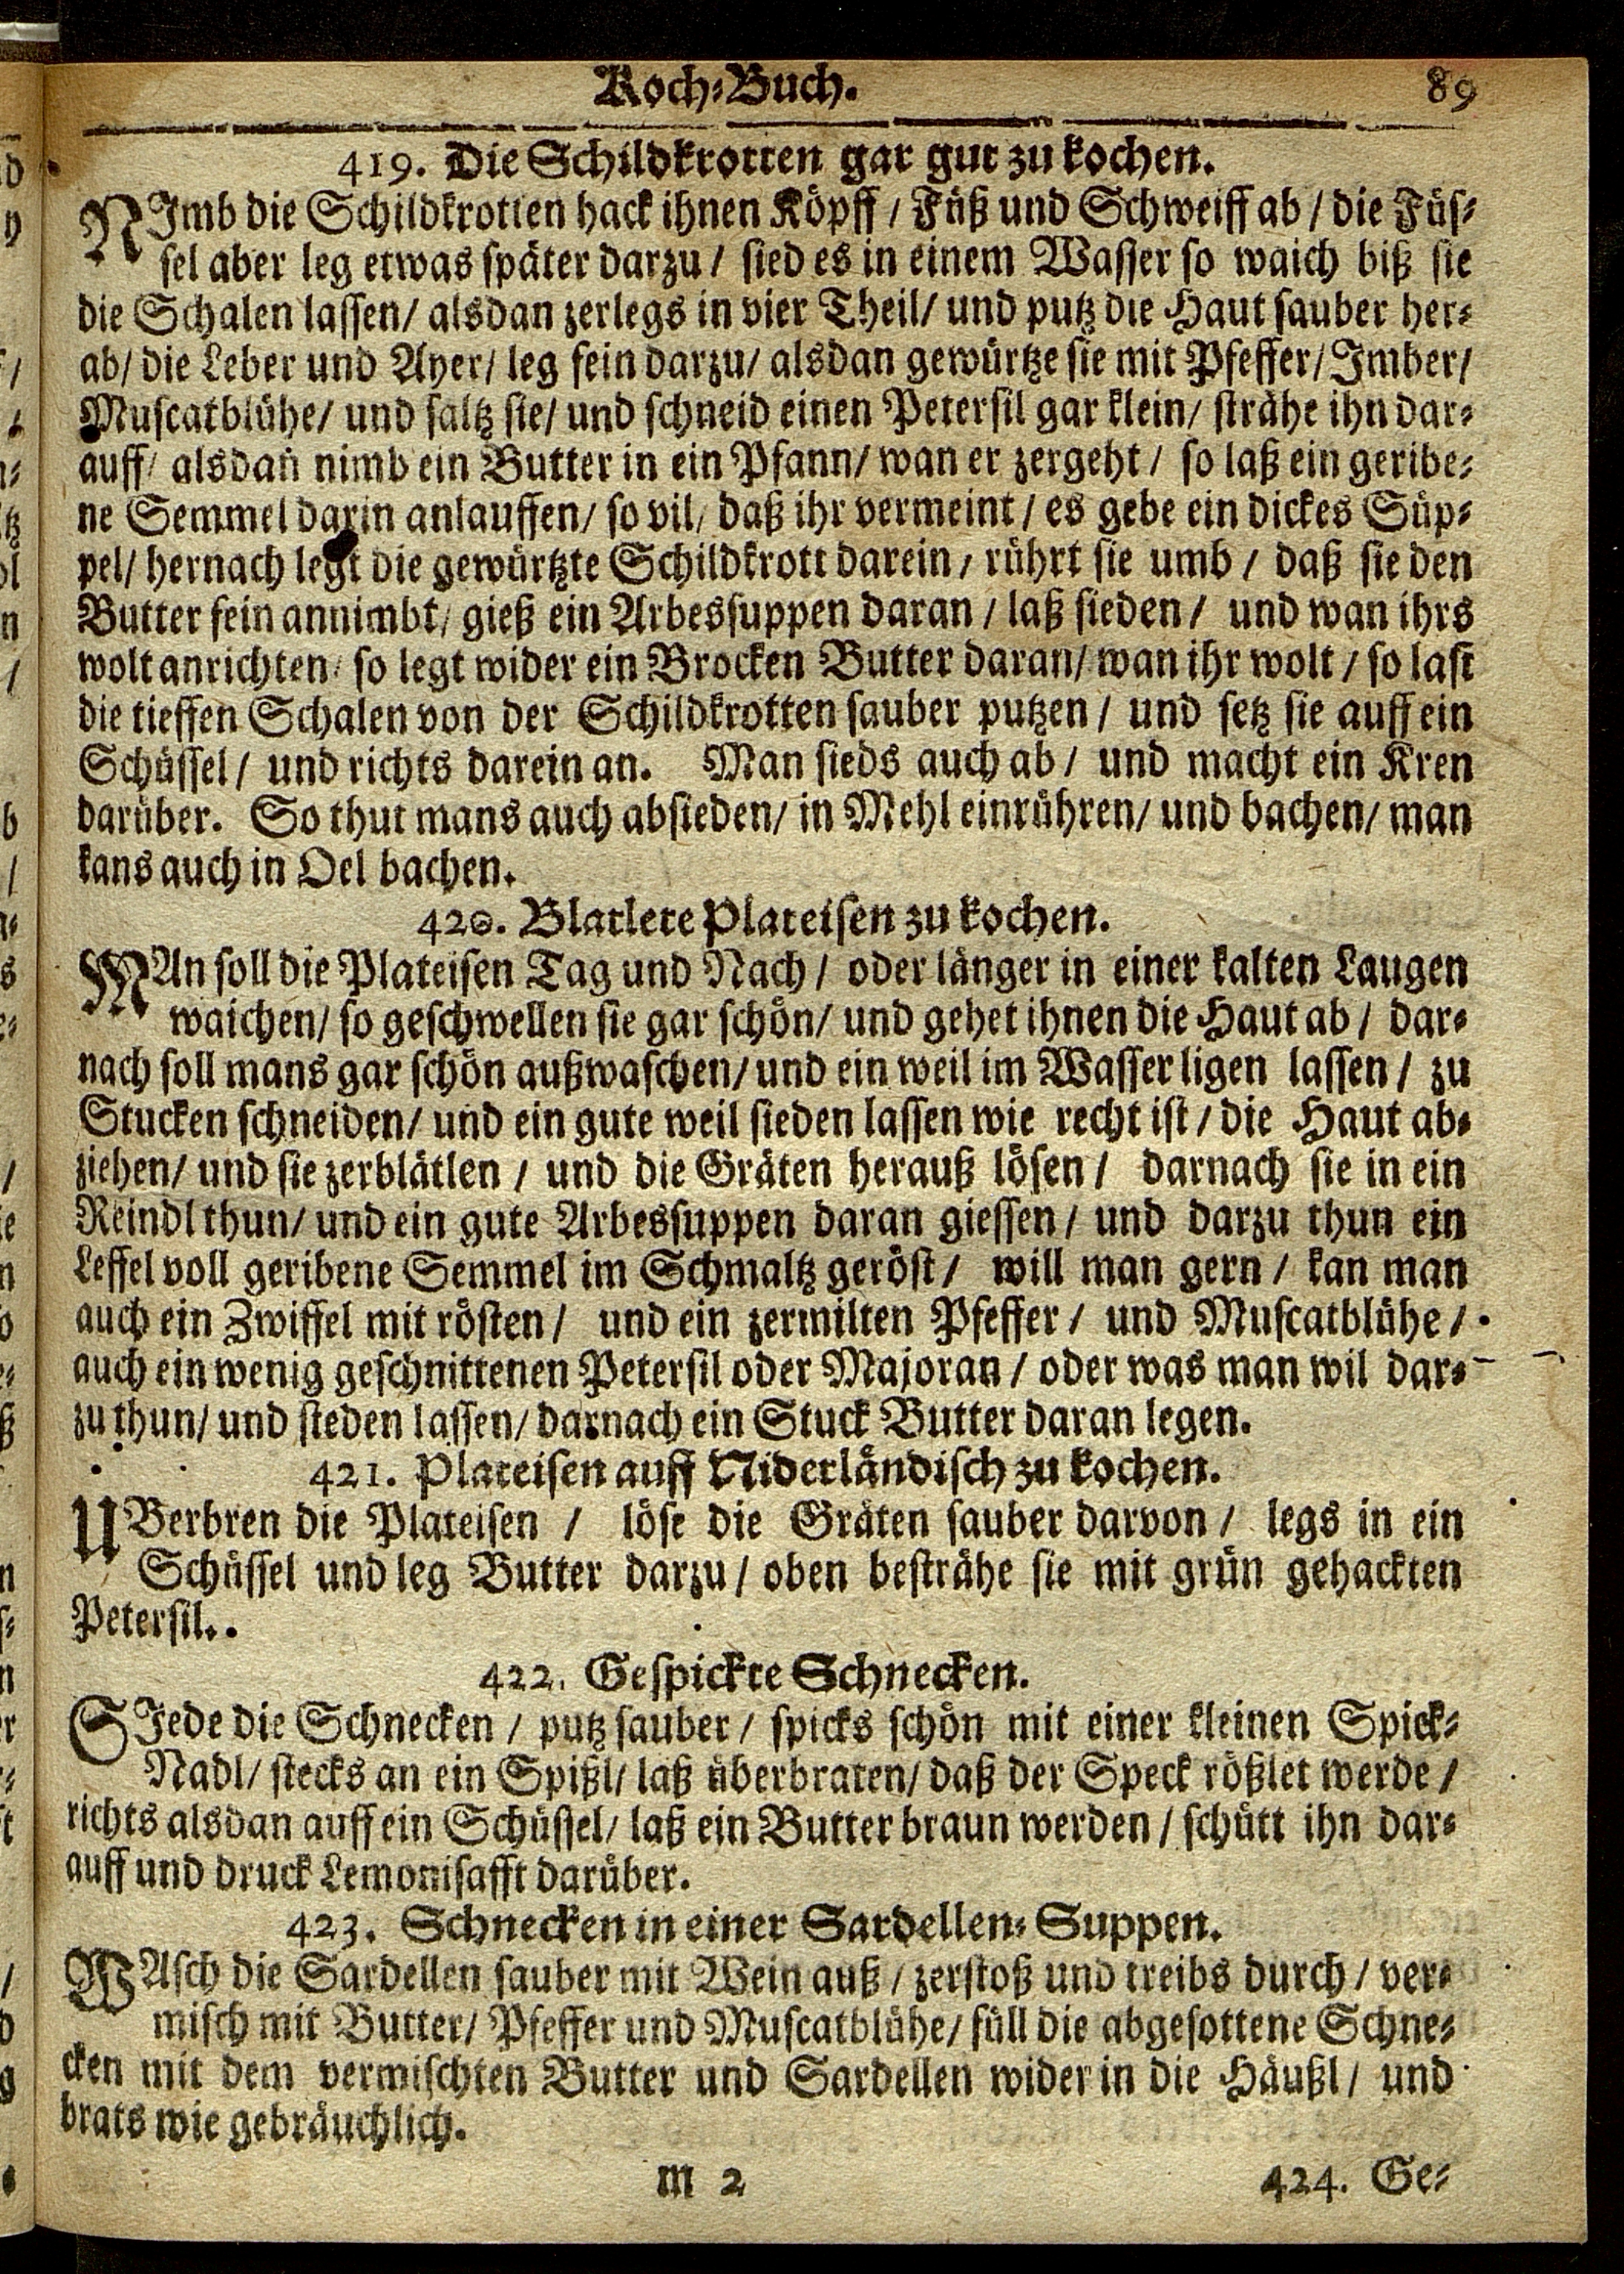 Koch-Buch. 89
419. Die Schildkrotten gar gut zu kochen.
NImb die Schildkrotten hack ihnen Köpff / Füß und Schweiff ab / die Füs-
sel aber leg etwas später darzu / sied es in einem Wasser so waich biß sie
die Schalen lassen / alsdan zerlegs in vier Theil / und putz die Haut sauber her-
ab / die Leber und Ayer / leg fein darzu / alsdan gewürtze sie mit Pfeffer / Imber /
Muscatblühe / und saltz sie / und schneid einen Petersil gar klein / strähe ihn dar-
auff / alsdañ nimb ein Butter in ein Pfann / wan er zergeht / so laß ein geribe-
ne Semmel darin anlauffen / so vil / daß ihr vermeint / es gebe ein dickes Süp-
pel / hernach legt die gewürtzte Schildkrott darein / rührt sie umb / daß sie den
Butter fein annimbt / gieß ein Arbessuppen daran / laß sieden / und wan ihrs
wolt anrichten / so legt wider ein Brocken Butter daran / wan ihr wolt / so last
die tieffen Schalen von der Schildkrotten sauber putzen / und setz sie auff ein
Schüssel / und richts darein an. Man sieds auch ab / und macht ein Kren
darüber. So thut mans auch absieden / in Mehl einrühren / und bachen / man
kans auch in Oel bachen.
420. Blatlete Plateisen zu kochen.
MAn soll die Plateisen Tag und Nach / oder länger in einer kalten Laugen
waichen / so geschwellen sie gar schön / und gehet ihnen die Haut ab / dar-
nach soll mans gar schön außwaschen / und ein weil im Wasser ligen lassen / zu
Stucken schneiden / und ein gute weil sieden lassen wie recht ist / die Haut ab-
ziehen / und sie zerblätlen / und die Gräten herauß lösen / darnach sie in ein
Reindl thun / und ein gute Arbessuppen daran giessen / und darzu thun ein
Leffel voll geribene Semmel im Schmaltz geröst / will man gern / kan man
auch ein Zwiffel mit rösten / und ein zermilten Pfeffer / und Muscatblühe /
auch ein wenig geschnittenen Petersil oder Majoran / oder was man wil dar-
zu thun / und sieden lassen / darnach ein Stuck Butter daran legen.
421. Plateisen auff Niderländisch zu kochen.
UBerbren die Plateisen / löse die Gräten sauber darvon / legs in ein
Schüssel und leg Butter darzu / oben besträhe sie mit grün gehackten
Petersil.
422. Gespickte Schnecken.
SIede die Schnecken / putz sauber / spicks schön mit einer kleinen Spick-
Nadl / stecks an ein Spißl / laß überbraten / daß der Speck rößlet werde /
richts alsdan auff ein Schüssel / laß ein Butter braun werden / schütt ihn dar-
auff und druck Lemonisafft darüber.
423. Schnecken in einer Sardellen-Suppen.
WAsch die Sardellen sauber mit Wein auß / zerstoß und treibs durch / ver-
misch mit Butter / Pfeffer und Muscatblühe / füll die abgesottene Schne-
cken mit dem vermischten Butter und Sardellen wider in die Häußl / und
brats wie gebräuchlich.
M 2 424. Ge-